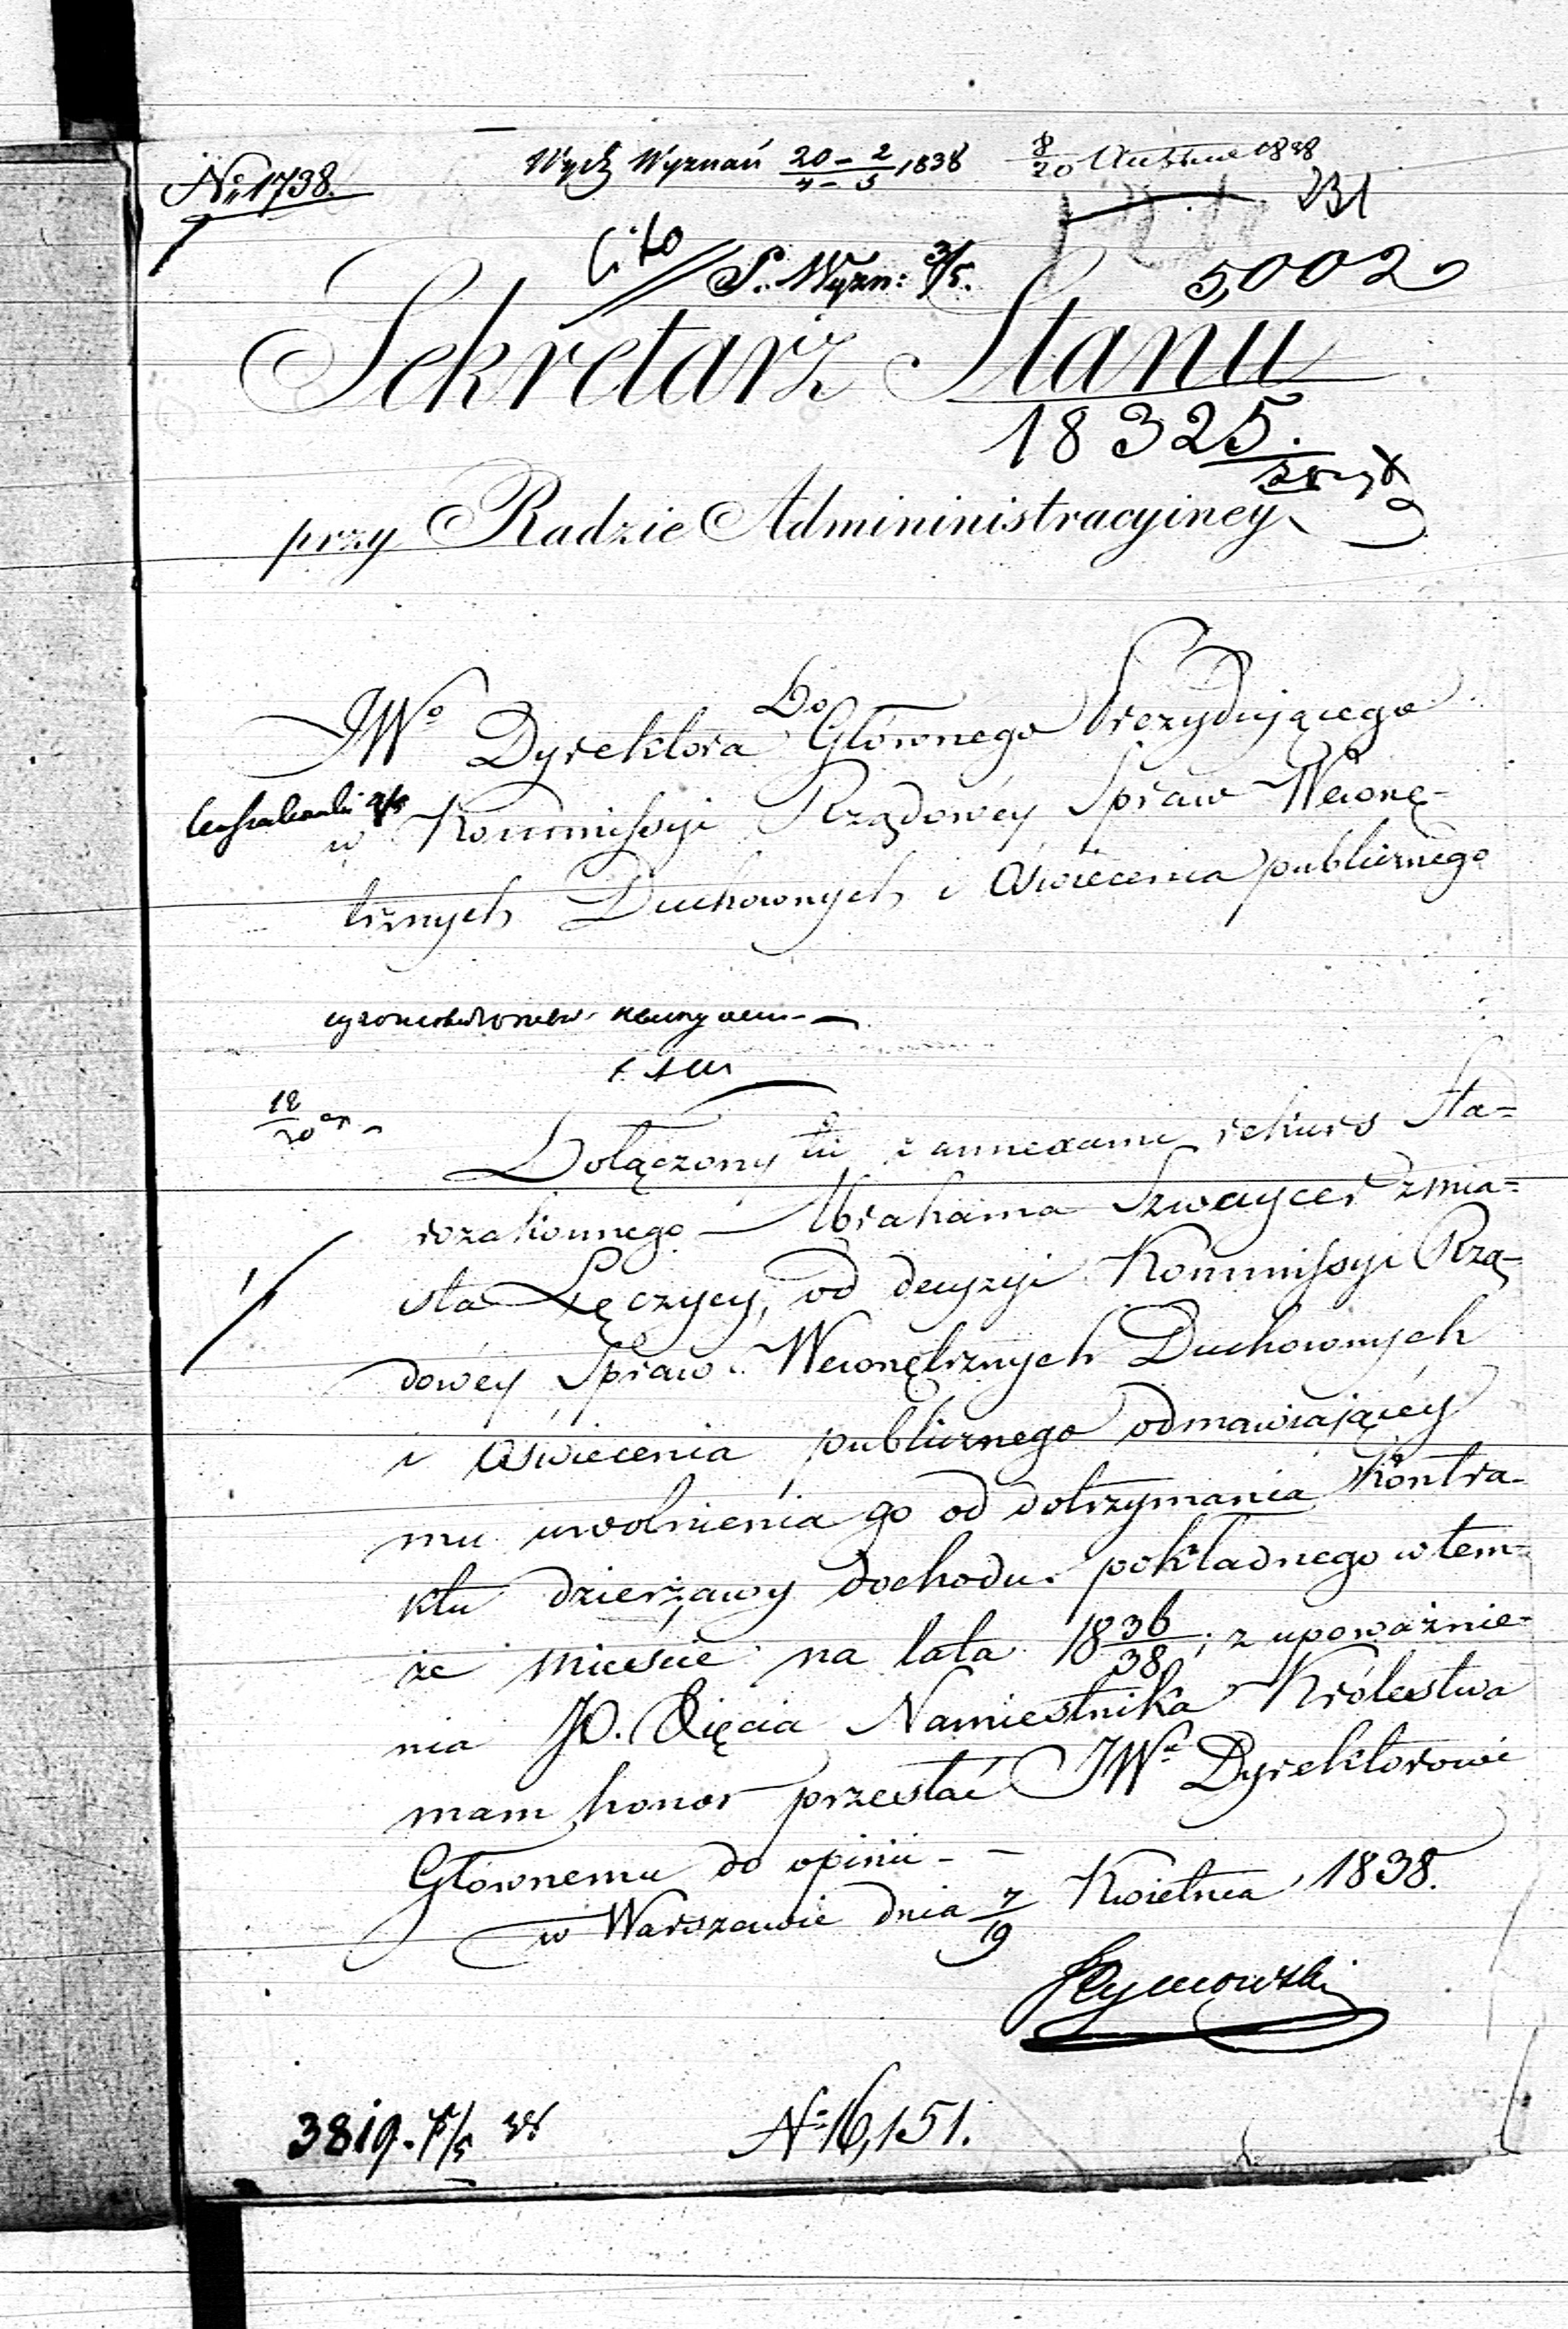 No 1738.
Wydz Wyznań 20–2/4–5 1838
8/20 1838
231
Cito
S. Wyzn: 3/5.
5,002
Sekretarz Stanu
18325.
przy Radzie Admininistracyiney
Do
JWo Dyrektora Głównego Prezydującego
w Kommissyi Rządowéy Spraw Wewnę-
trznych Duchownych i Oświecenia publicznego
Dołączony tu z annexami rekurs Sta=
rozakonnego Abrahama Szwaycer z mia=
sta Łęczycy, od decyzyi Kommissyi Rzą-
dowéy Spraw Wewnętrznych Duchownych
i Oświecenia publicznego odmawiającéy
mu uwolnienia go od dotrzymania Kontra-
ktu dzierżawy dochodu pokładnego w tem-
że mieście na lata 18 36/38; z upoważnie-
nia JO. Xięcia Namiestnika Królestwa
mam honor przesłać JWu Dyrektorowi
Głównemu do opinii - -
w Warszawie dnia 7/19 Kwietnia 1838.
Tymowski
3819. 38
No 16,151.